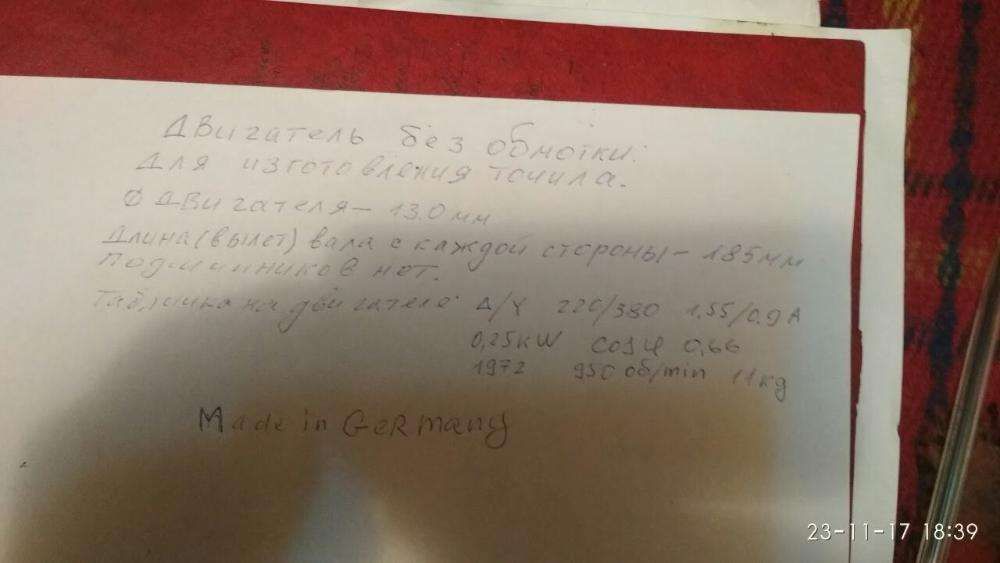 Двигатель без обмотки.
Для изготовления точила.
Ф двигателя - 130 мм
Длина (вылет) вала с каждой стороны - 185 мм
Подшипников нет.
Табличка на двигателе: Δ/Y 220/380 1,55/0.9 A
0,25 kW cosφ 0,66
1972 950 об/min 11 kg
Made in Germany
23-11-17 18:39